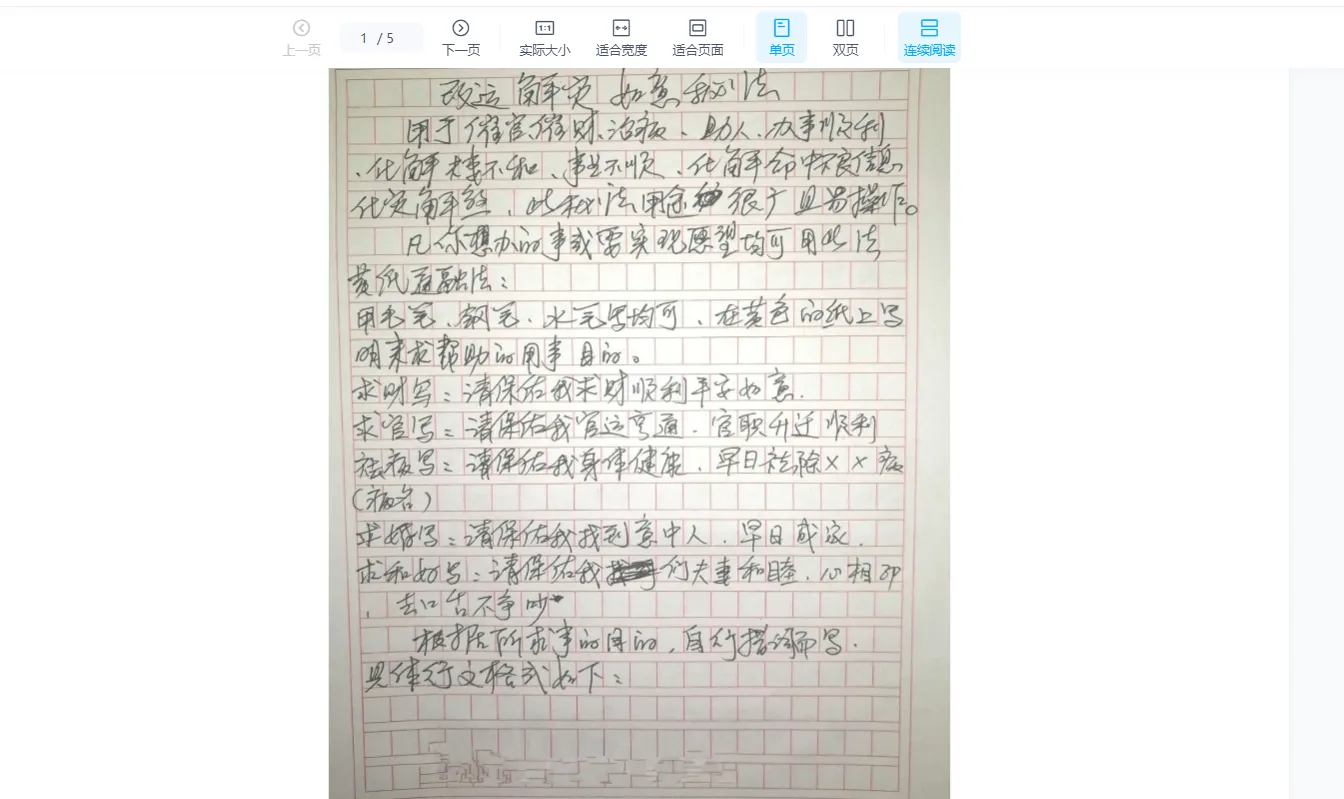 上一页
1 / 5
下一页
1:1
实际大小
适合宽度
适合页面
单页
双页
连续阅读
改运解灾如意秘法
用于催官催财、治病、助人、办事顺利
、化解夫妻不和、事业不顺、化解命中不良信息
化灾解煞、此秘法用途很广且易操作。
凡你想办的事或要实现愿望均可用此法
黄纸通融法：
用毛笔、钢笔、水毛笔均可、在黄色的纸上写
明来求帮助的用事目的。
求财写：请保佑我求财顺利平安如意.
求官写：请保佑我官运亨通．官职升迁顺利
祛病写：请保佑我身体健康．早日祛除××病
(病名)
求婚写：请保佑我找到意中人．早日成家.
求和好写：请保佑我们夫妻和睦．心相印
、去口舌不争吵
根据所求事的目的，自行措词而写.
具体行文格式如下：